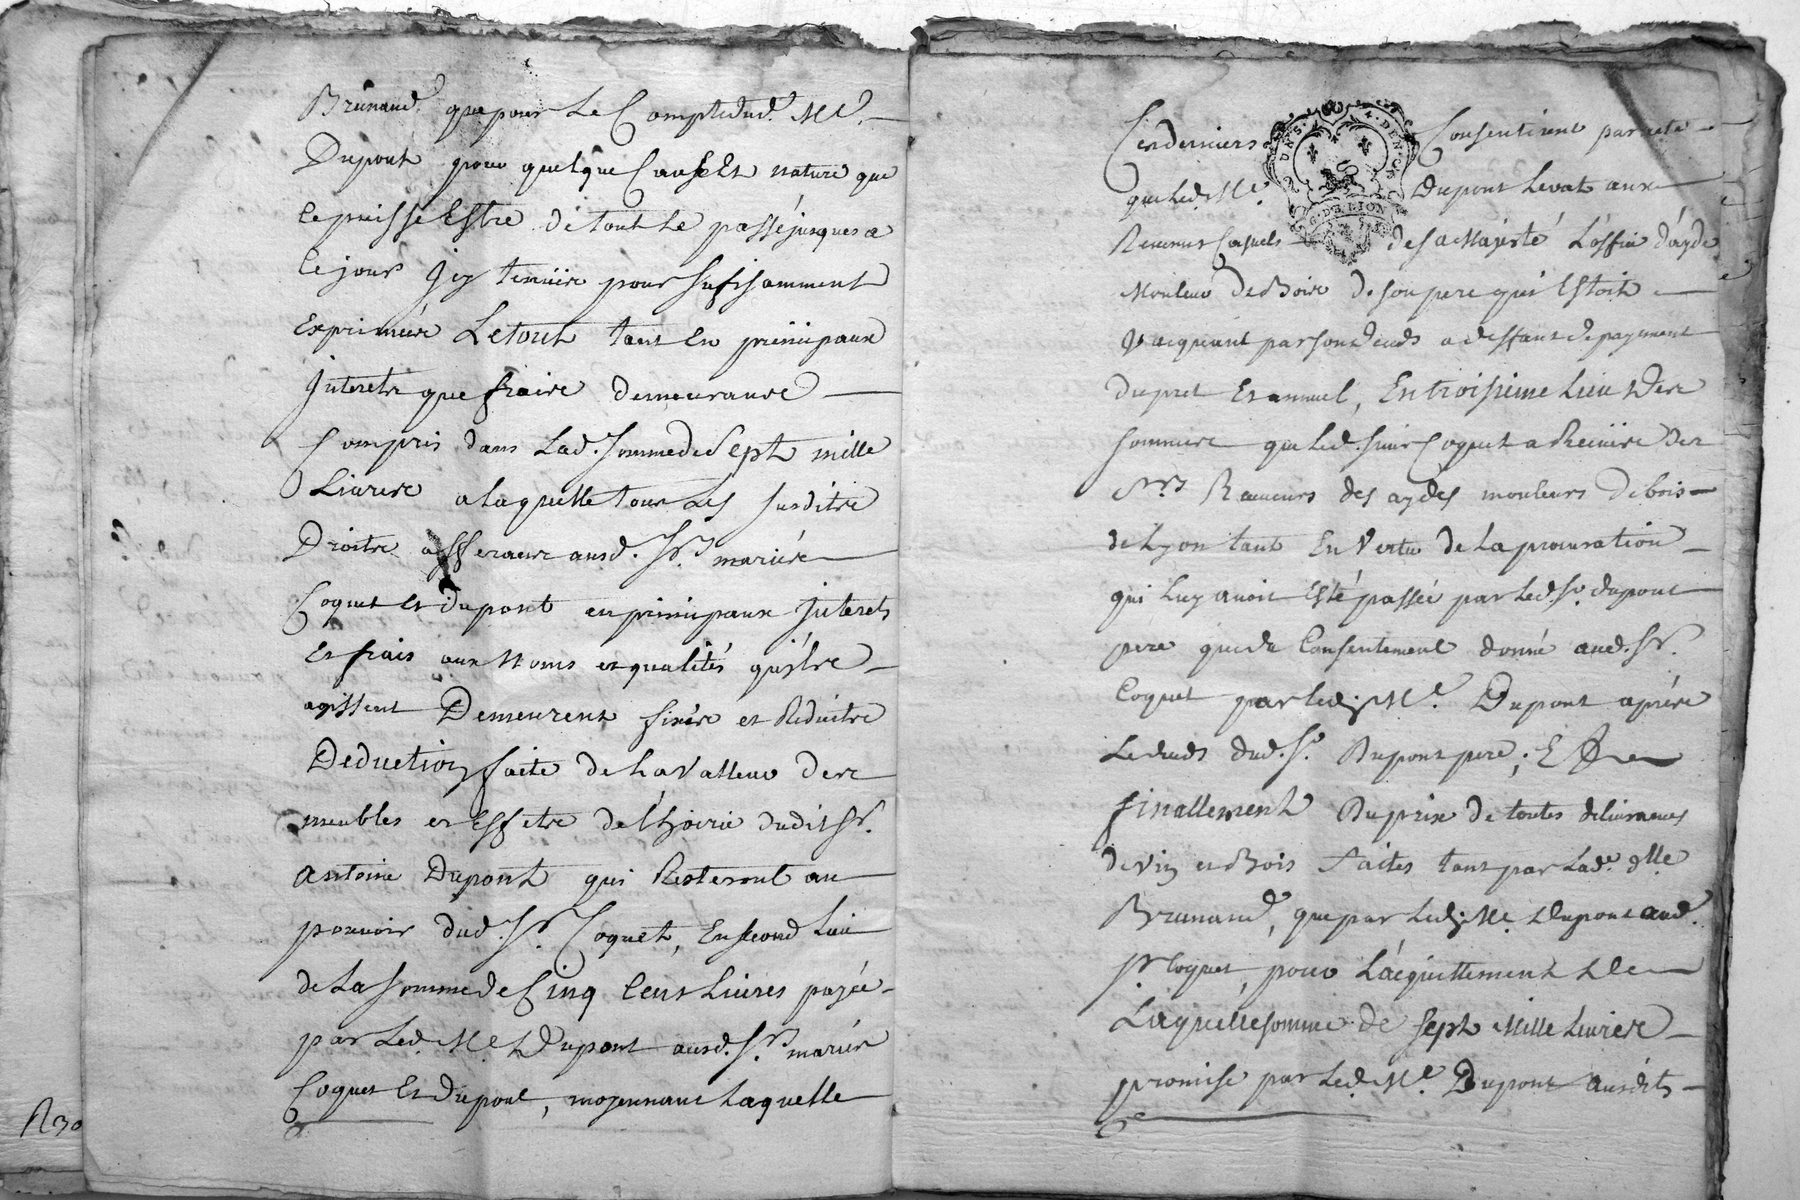 Brunaud que pour Le Compte dud. Me.
Dupont pour quelque Cause Et nature que
ce puisse Estre de tout Le passé jusques a
ce jour Icy tenüe pour sufisamment
exprimées Le tout tant en principaux
Interets que fraix demeurants
Compris dans Lad. somme de Sept mille
Livres a laquelle tous Les susdits
Droits afferants ausd. Srs. mariés
Coquet et dupont en principaux Interets
et frais aux Noms et qualités qu'ils
agissent Demeurent fixés et Reduits
Deduction faite de La Valleur des
meubles et Effets de l'hoirie dudit Sr.
Antoine Dupont qui Resteront au
pouvoir dud. Sr. Coquet, En second Lieu
de La somme de Cinq Cens Livres payée
par Led. Me. Dupont ausd. Srs. mariés
Coquet Et Dupont, moyennant Laquelle
R30
Ces derniers Consentirent par acte
que Led. Me. Dupont Levat aux
Revenus Casuels de sa Majesté L'office d'ayde
Mouleur de Bois de son pere qui Estoit
Vacquant par son deceds a deffaut de payement
du pret Et annuel, En troisieme Lieu Des
sommes que Led. sieur Coquet a Receües Des
Srs. Receveurs des aydes mouleurs de bois
de Lyon tant En Vertu de La procuration
qui Luy avoit Esté passée par Led. Sr. dupont
pere que du Consentement donné aud. Sr.
Coquet par Led. Me. Dupont aprés
Le deceds dud. Sr. Dupont pere; Et
finallement Du prix de toutes delivrances
de vin et Bois faites tant par Lade. Dlle
Brunaud, que par Led. Me. Dupont aud.
Sr. Coquet, pour L'acquittement de
Laquelle somme de sept Mille Livres
promise par Led. Me. Dupont ausdits
G. DE LION